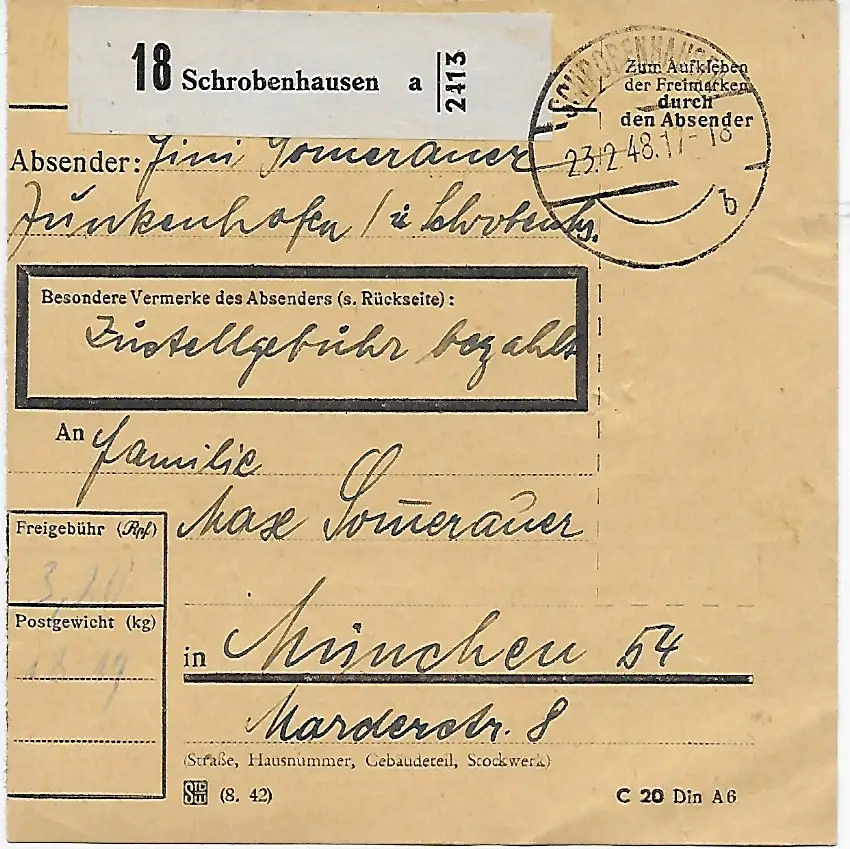 18 Schrobenhausen a 2413
SCHROBENHAUSEN
23.2.48.17-18
b
Zum Aufkleben
der Freimarken
durch
den Absender
Absender: Zini Somerauer
Junkenhofen / ü Schrobenhs.
Besondere Vermerke des Absenders (s. Rückseite):
Zustellgebühr bezahlt
An Familie
Max Som̄erauer
Freigebühr (Rpf)
Postgewicht (kg)
in München 54
Marderstr. 8
(Straße, Hausnummer, Gebäudeteil, Stockwerk)
(8. 42)
C 20 Din A6